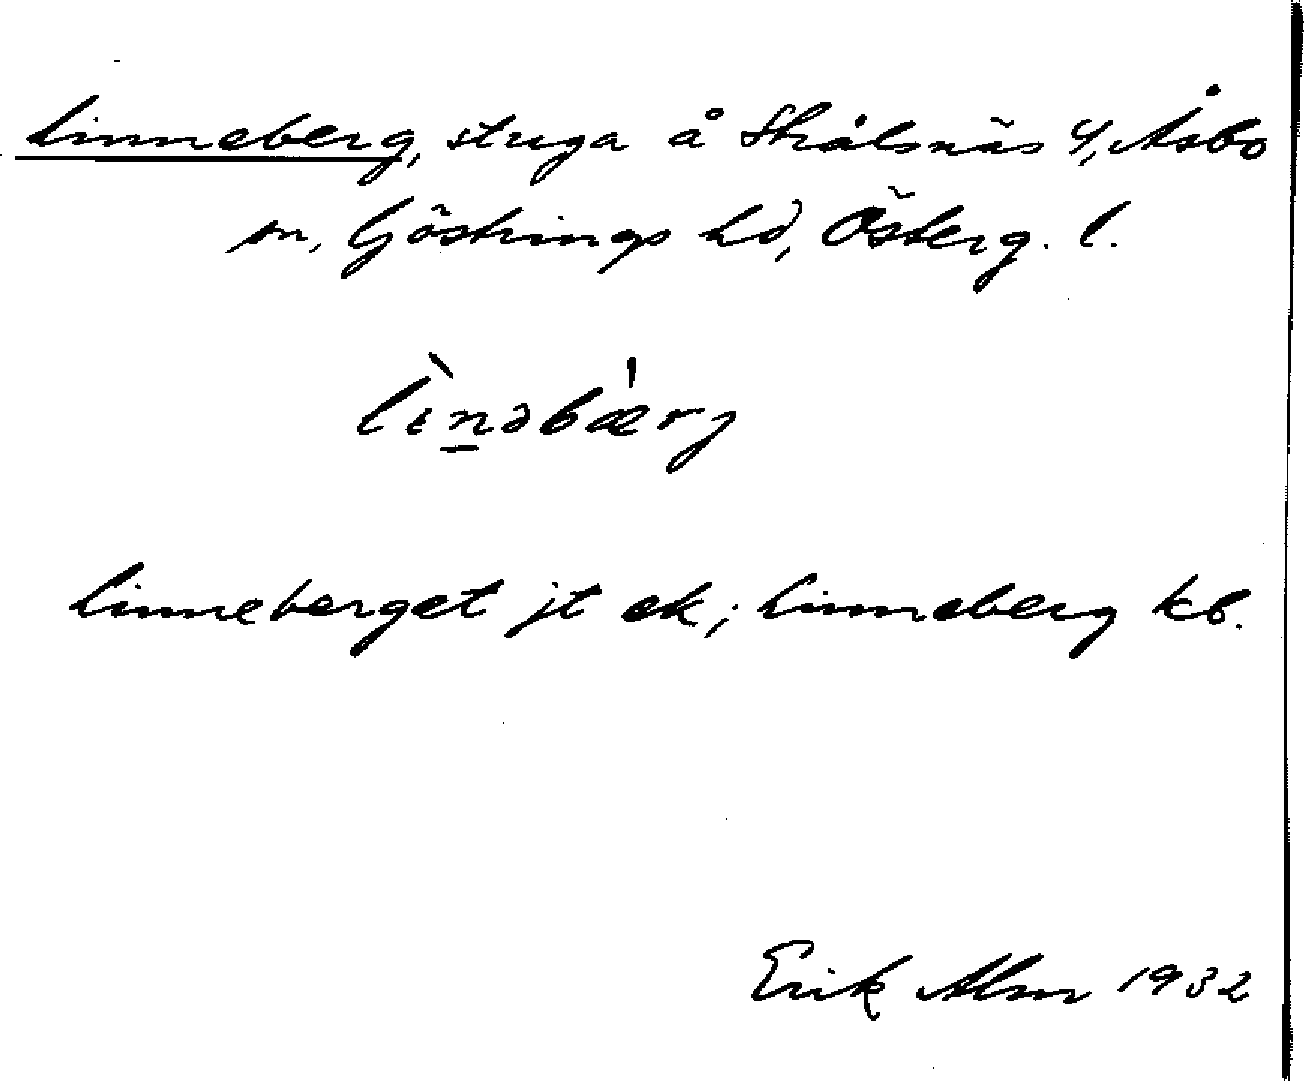 Linneberg, stuga å Strålsnäs 4, Åsbo
sn, Göstrings hd, Österg. l.
lìn̠əbǽrj
Linneberget jt ek; Linneberg kb.
Erik Alm 1932